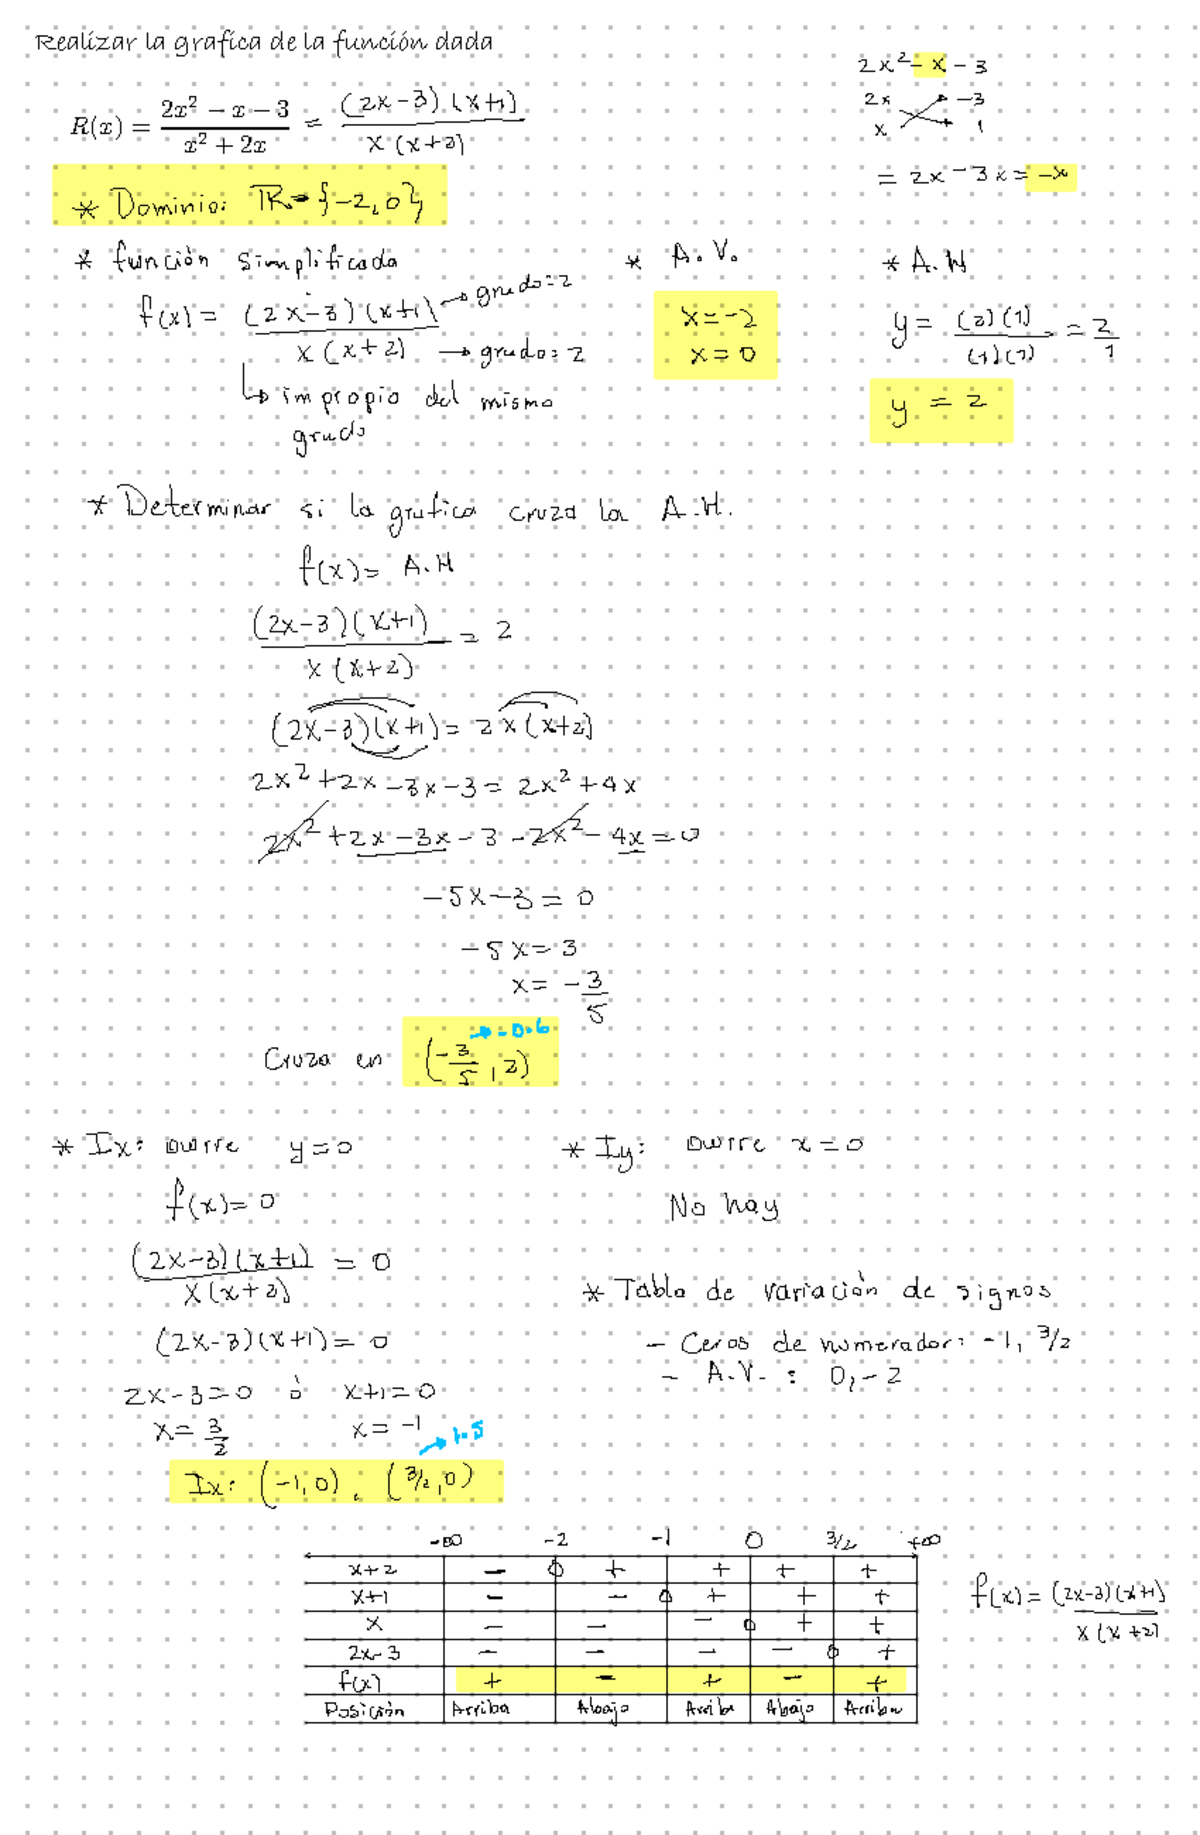 Realizar la grafica de la función dada
R(x) = (2x² − x − 3)/(x² + 2x) = ((2x-3)(x+1))/(x(x+2))
2x² - x - 3
2x -3
x 1
= 2x - 3x = -x
* Dominio: ℝ - {-2, 0}
* función simplificada
f(x) = ((2x-3)(x+1))/(x(x+2))
→ grado=2
→ grado=2
↳ impropia del mismo
grado
* A.V.
x=-2
x=0
* A.H
y = ((2)(1))/((1)(1)) = 2/1
y = 2
* Determinar si la grafica cruza la A.H.
f(x) = A.H
((2x-3)(x+1))/(x(x+2)) = 2
(2x-3)(x+1) = 2x(x+2)
2x²+2x-3x-3 = 2x²+4x
2x²+2x-3x-3-2x²-4x=0
-5x-3=0
-5x=3
x= -3/5
→ -0.6
Cruza en (-3/5, 2)
* Ix: ocurre y=0
f(x)=0
((2x-3)(x+1))/(x(x+2)) = 0
(2x-3)(x+1)=0
2x-3=0 ó x+1=0
x=3/2 x=-1
→ 1.5
Ix: (-1,0), (3/2,0)
* Iy: ocurre x=0
No hay
* Tabla de variación de signos
- Ceros de numerador: -1, 3/2
- A.V. : 0, -2
-∞ -2 -1 0 3/2 +∞
x+2 - 0 + + + +
x+1 - - 0 + + +
x - - - 0 + +
2x-3 - - - - 0 +
f(x) + - + - +
Posición Arriba Abajo Arriba Abajo Arriba
f(x) = ((2x-3)(x+1))/(x(x+2))